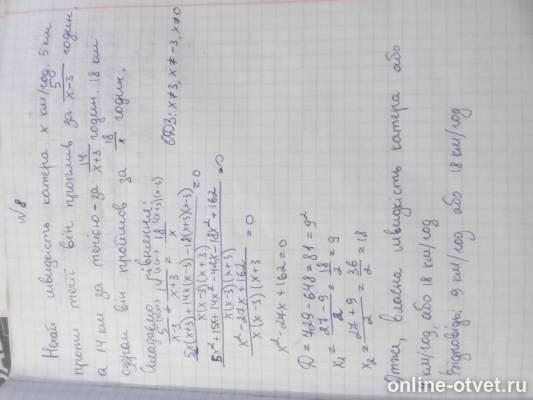 №8
Нехай швидкість катера x км/год. 5 км
проти течії він проплив за 5/(x-3) годин,
а 14 км за течією - за 14/(x+3) годин. 18 км
озером він проплив за 18/x годин.
Складаємо рівняння:
5/(x-3) + 14/(x+3) = 18/x ОДЗ: x≠3, x≠-3, x≠0
(5x(x+3)+14x(x-3)-18(x+3)(x-3))/(x(x-3)(x+3)) = 0
(5x²+15x+14x²-42x-18x²+162)/(x(x-3)(x+3)) = 0
(x²-27x+162)/(x(x-3)(x+3 = 0
x²-27x+162=0
D = 729-648=81=9²
x₁ = (27-9)/2 = 18/2 = 9
x₂ = (27+9)/2 = 36/2 = 18
Отже, власна швидкість катера або
км/год, або 18 км/год
Відповідь: 9 км/год або 18 км/год
online-otvet.ru